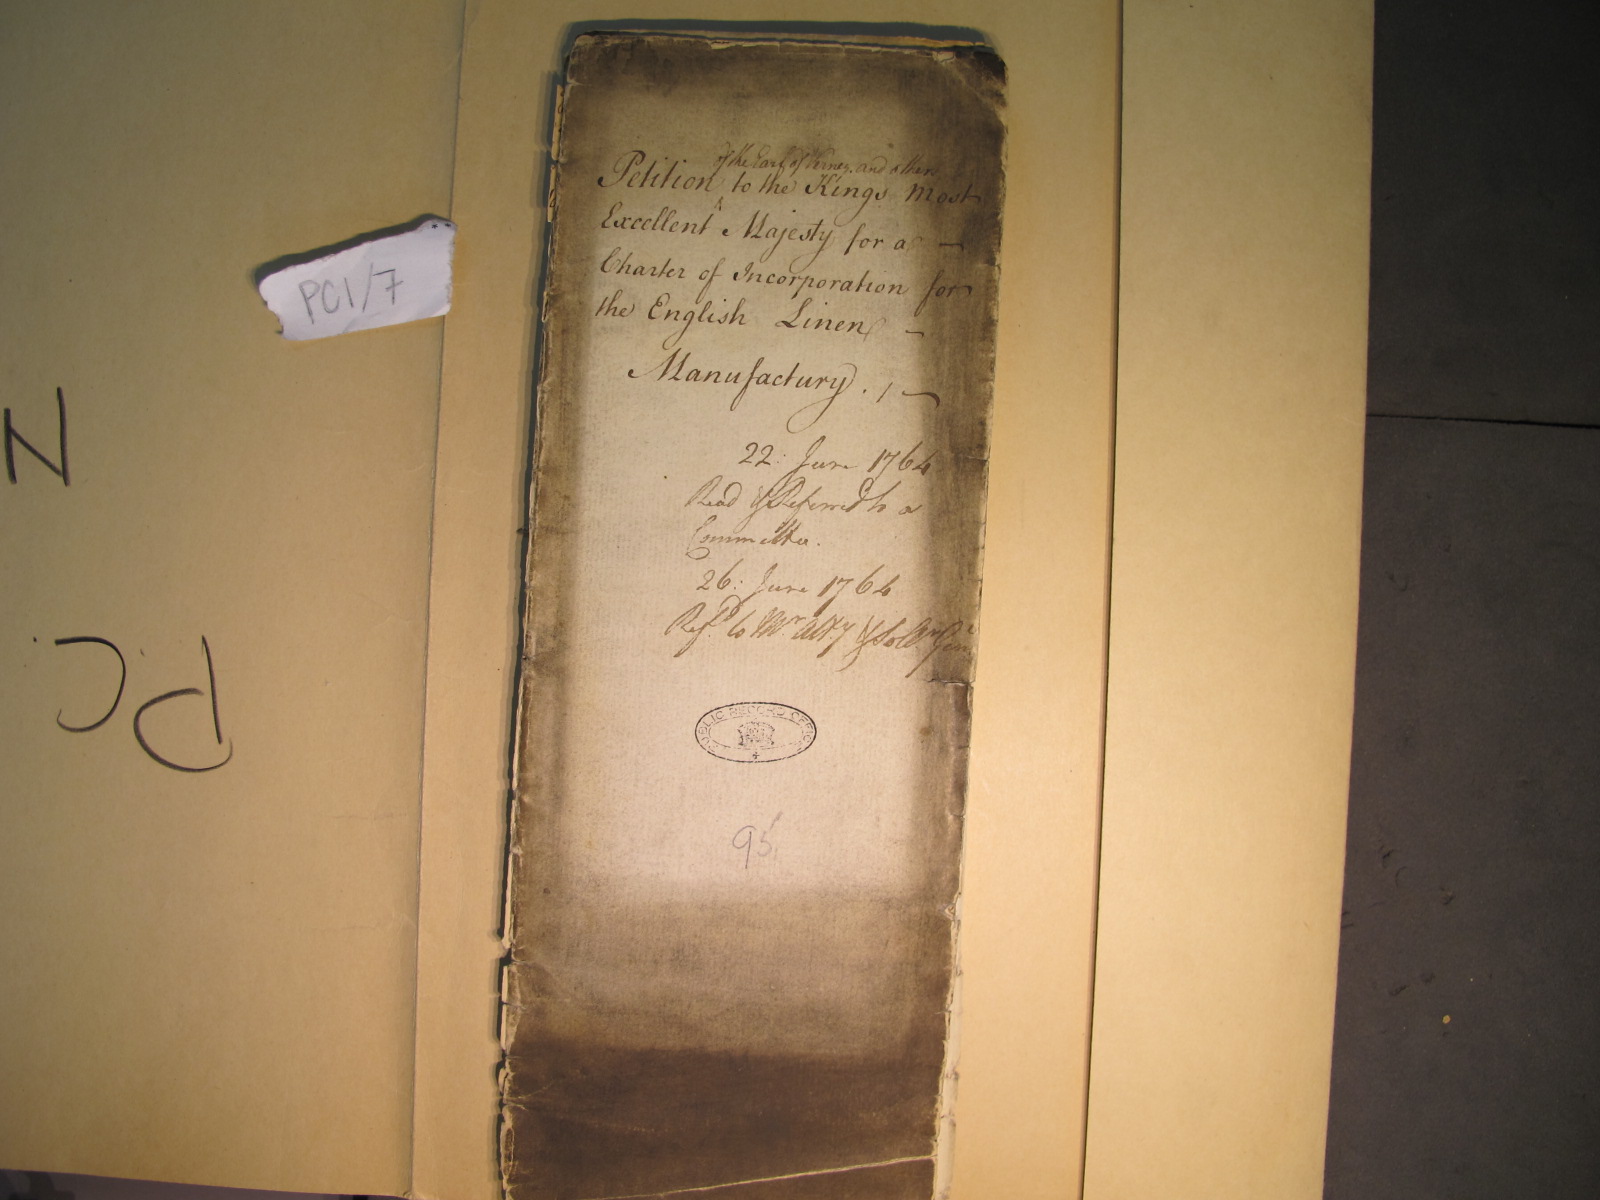 of the Earl of Verney and others
Petition ^ to the Kings Most
Excellent Majesty for a —
Charter of Incorporation for
the English Linen —
Manufactury. / —
22: June 1764
Read & Referred to a
Committee.
26: June 1764
Refd. to Mr. Atty & Sollr. Genl.
PUBLIC RECORD OFFICE
95
PC1/7
N
PC